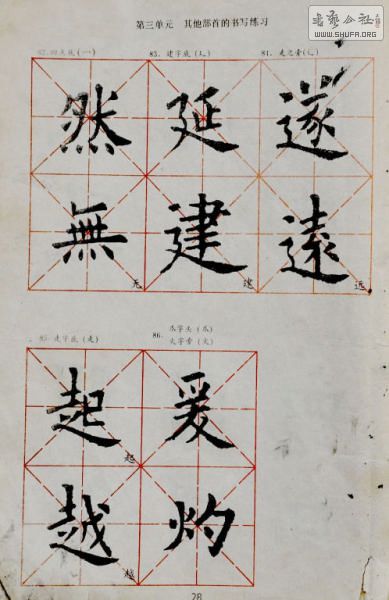 書藝公社
WWW.SHUFA.ORG
第三单元 其他部首的书写练习
82. 四点底(灬) 83. 建字底(廴) 84. 走之旁(辶)
然 延 遂
無 建 遠
无 远
爪字头(爪)
85. 走字底(走) 86.
火字旁(火)
起 爰
起
越 灼
越
28